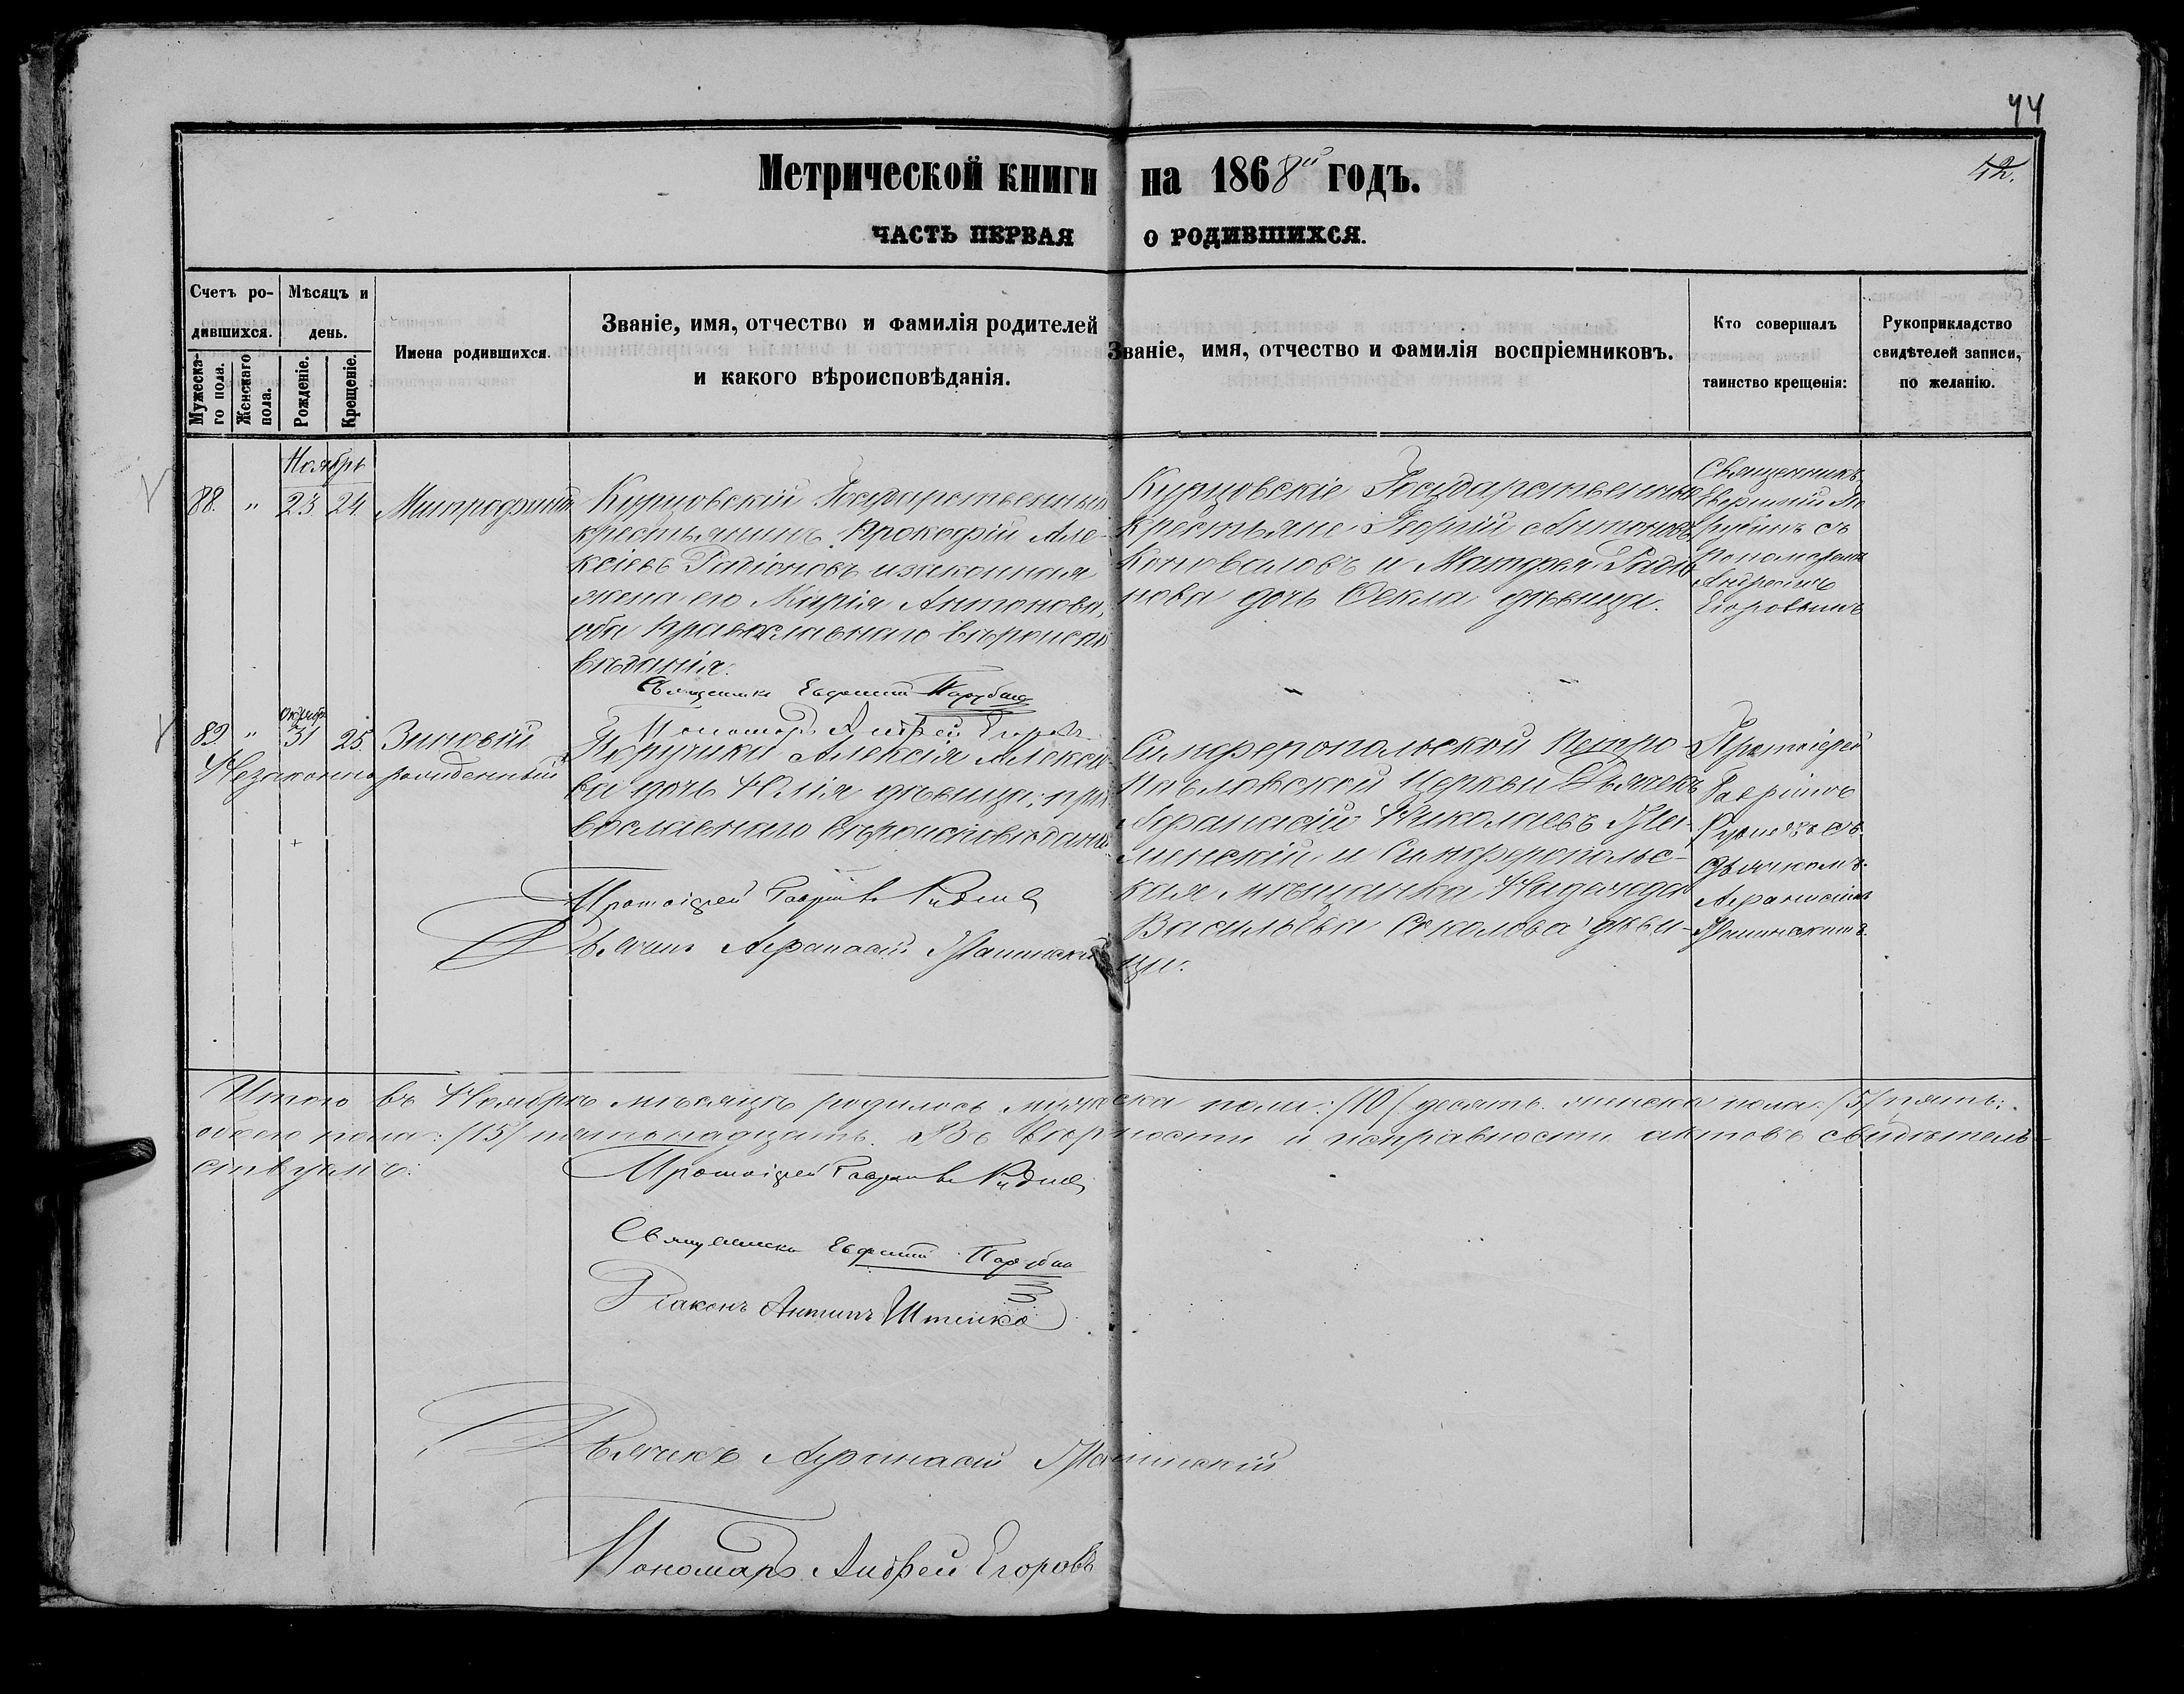 44
42.
Метрической книги на 1868й годъ.
ЧАСТЬ ПЕРВАЯ О РОДИВШИХСЯ.
Счетъ ро-
дившихся.
Мужеска-
го пола.
Женскаго
пола.
Мѣсяцъ и
день.
Рожденіе.
Крещеніе.
Имена родившихся.
Званіе, имя, отчество и фамилія родителей
и какого вѣроисповѣданія.
Званіе, имя, отчество и фамилія воспріемниковъ.
Кто совершалъ
таинство крещенія:
Рукоприкладство
свидѣтелей записи,
по желанію.
Ноябрь
88. " 23. 24. Митрофанъ
Курцовскій Государственный
крестьянинъ Прокофій Але-
ксіевъ Радіоновъ и законная
жена его Марія Антонова,
оба православнаго вѣроиспо
вѣданія.
Священникъ Евфимій
Пономарь Андрей Егоровъ
Курцовскіе Государственные
крестьяне Георгій Антоновъ
Коноваловъ и Матфея Радіо
нова дочь Ѳекла дѣвица.
Священникъ
Евфимій
съ
Пономаремъ
Андреемъ
Егоровымъ
Октябрь
89. " 31 25. Зиновій
Незаконнорожденный
Поручика Алексія Алексѣе
ва дочь Юлія дѣвица, пра
вославнаго вѣроисповѣданія.
Протоіерей Гавріилъ
Дьячекъ Афанасій
Симферопольской Петро-
Павловской церкви Дьячекъ
Афанасій Николаевъ
и Симферопольс-
кая мѣщанка Надежда
Васильева Соколова дѣви-
ца.
Протоіерей
Гавріилъ
съ
Дьячкомъ
Афанасіемъ
Итого въ Ноябрѣ мѣсяцѣ родилось мужеска пола: /10/ десять. женска пола: /5/ пять:
обоего пола: /15/ пятьнадцать. Въ вѣрности и исправности актовъ свидѣтель-
ствуемъ:
Протоіерей Гавріилъ
Священникъ Евфимій
Діаконъ Антипъ
Дьячекъ Афанасій
Пономарь Андрей Егоровъ